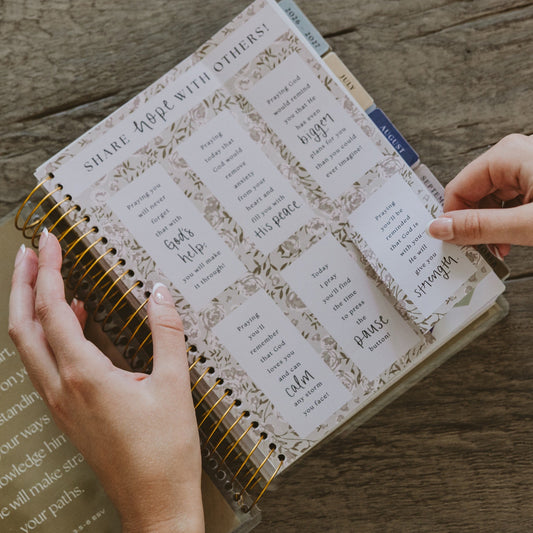 2026
2027
JULY
AUGUST
SHARE hope WITH OTHERS!
Praying you
will never
forget
that with
God's
help,
you will make
it through!
Praying
today that
God would
remove
anxiety
from your
heart and
fill you with
His peace
Praying God
would remind
you that He
has even
bigger
plans for you
than you could
ever imagine!
Praying
you'll
remember
that God
loves you
and can
calm
any storm
you face!
Today
I pray
you'll find
the time
to press
the
pause
button!
Praying
you'll be
reminded
that God is
with you
and will
give you
strength
standing
your ways
will make
your paths.